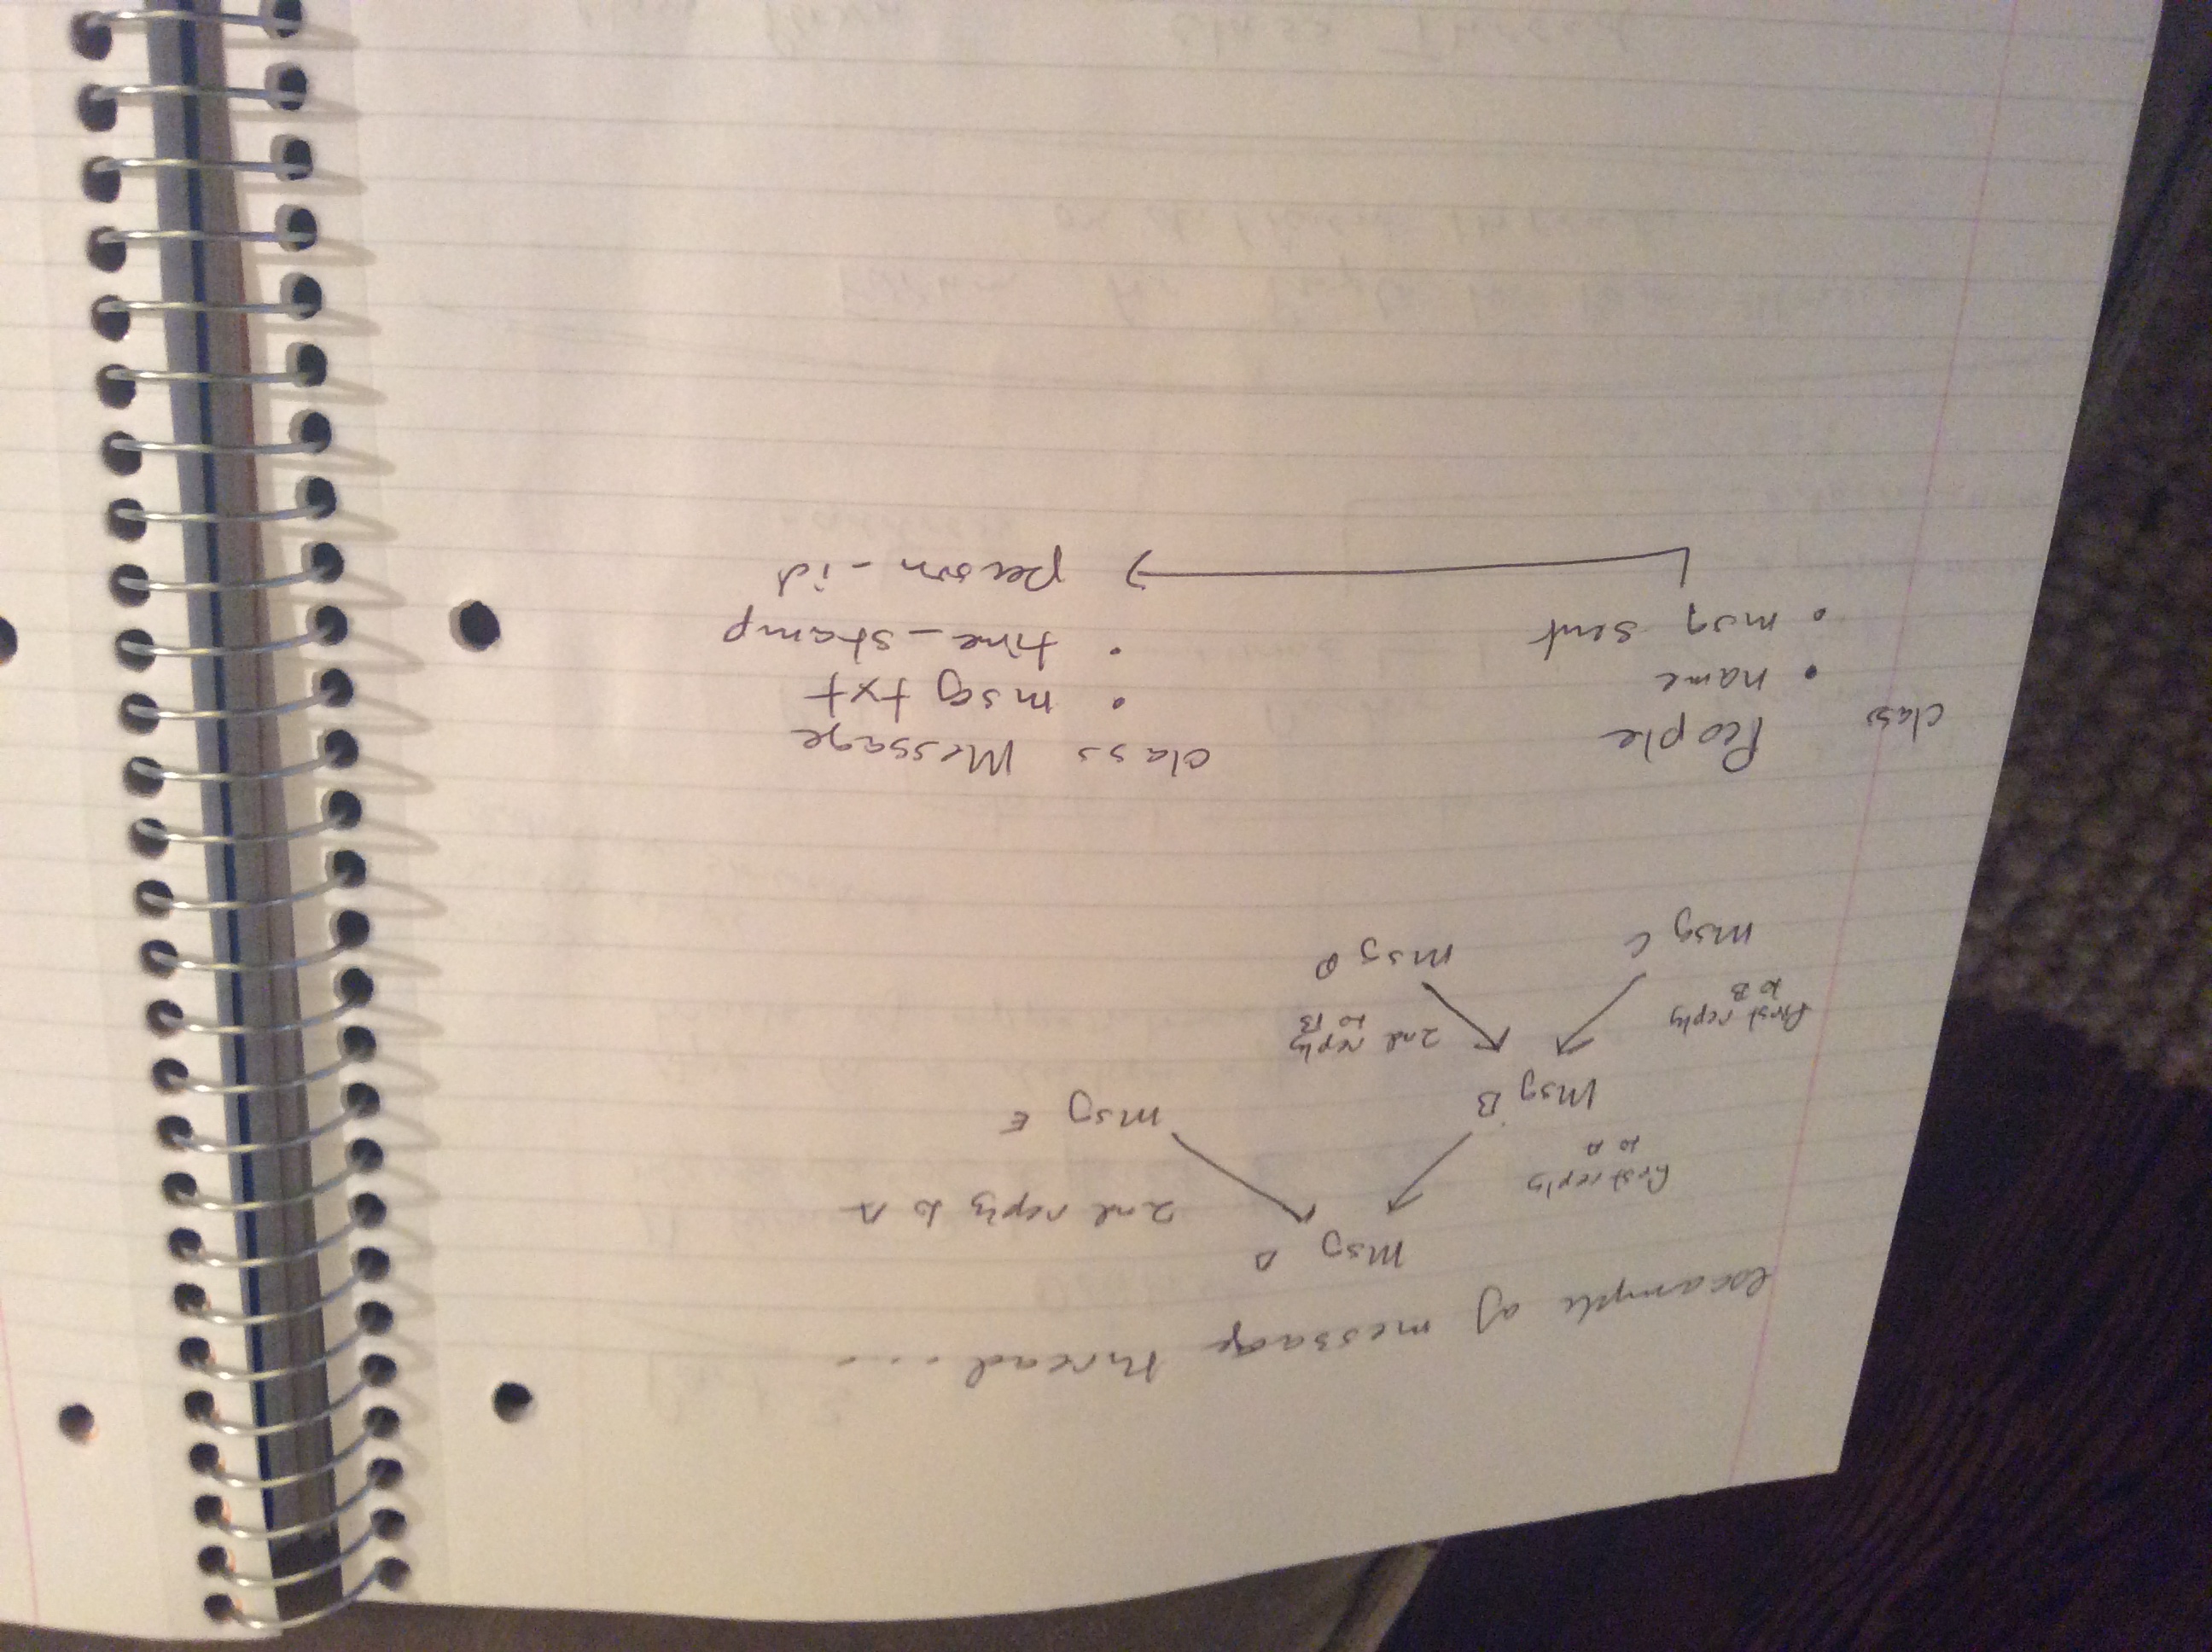 example of message thread....
Msg A
first reply
to A
2nd reply to A
Msg B
msg E
first reply
to B
2nd reply
to B
msg C
msg D
class People
• name
• msg sent
class Message
• msg txt
• time_stamp
person_id